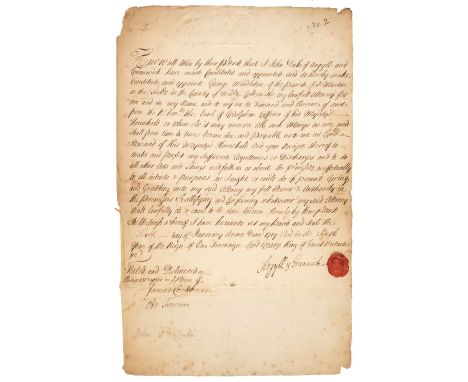 No. 2
Know all Men by these Presents that I John Duke of Argyll and
Greenwich have made Constituted and appointed and do hereby make
Constitute and appoint George Middleton of the Parish of St Martin
in the fields in the County of Middx Goldsmith my lawfull Attorney for
me and in my Name and to my use to Demand and Receive of and
from the Rt. Honble the Earl of Godolphin Cofferer of his Majestys
Household or whom else it may concern all such Monys as are and
shall from time to time become due and Payable unto me as Lord
Steward of His Majestys Household and upon Receipt thereof to
make and give sufficient Acquittances or Discharges and to do
all other Acts and Things
to all intents & purposes as I might or could do if present Giving
and Granting unto my said Attorny my full Power & Authority in
the premisses Ratifying and Confirming whatsoever my said Attorny
shall lawfully do or cause to be done therein by these presents
In Witness whereof I have hereunto set my Hand and Seal this
day of January Anno Dom: 1719 And in the Sixth
Year of the Reign of Our Sovereign Lord George King of Great Britain
&c
Argyll & Greenwich
Sealed and Delivered
in Presence of
James Cockburn